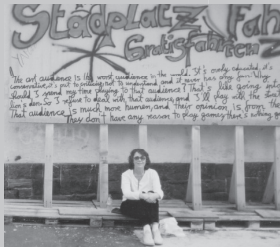 Städplatz Fah
Gratisfahren
The art audience is the worst audience in the world. It's overly educated, it's
conservative, it's out to criticize not to understand, and it never has any fun. Why
should I spend my time playing to that audience? That's like going into
lion's den. So I refuse to deal with that audience, and I'll play with the
That audience is much more human, and their opinion is from the
They don't have any reason to play games there's nothing